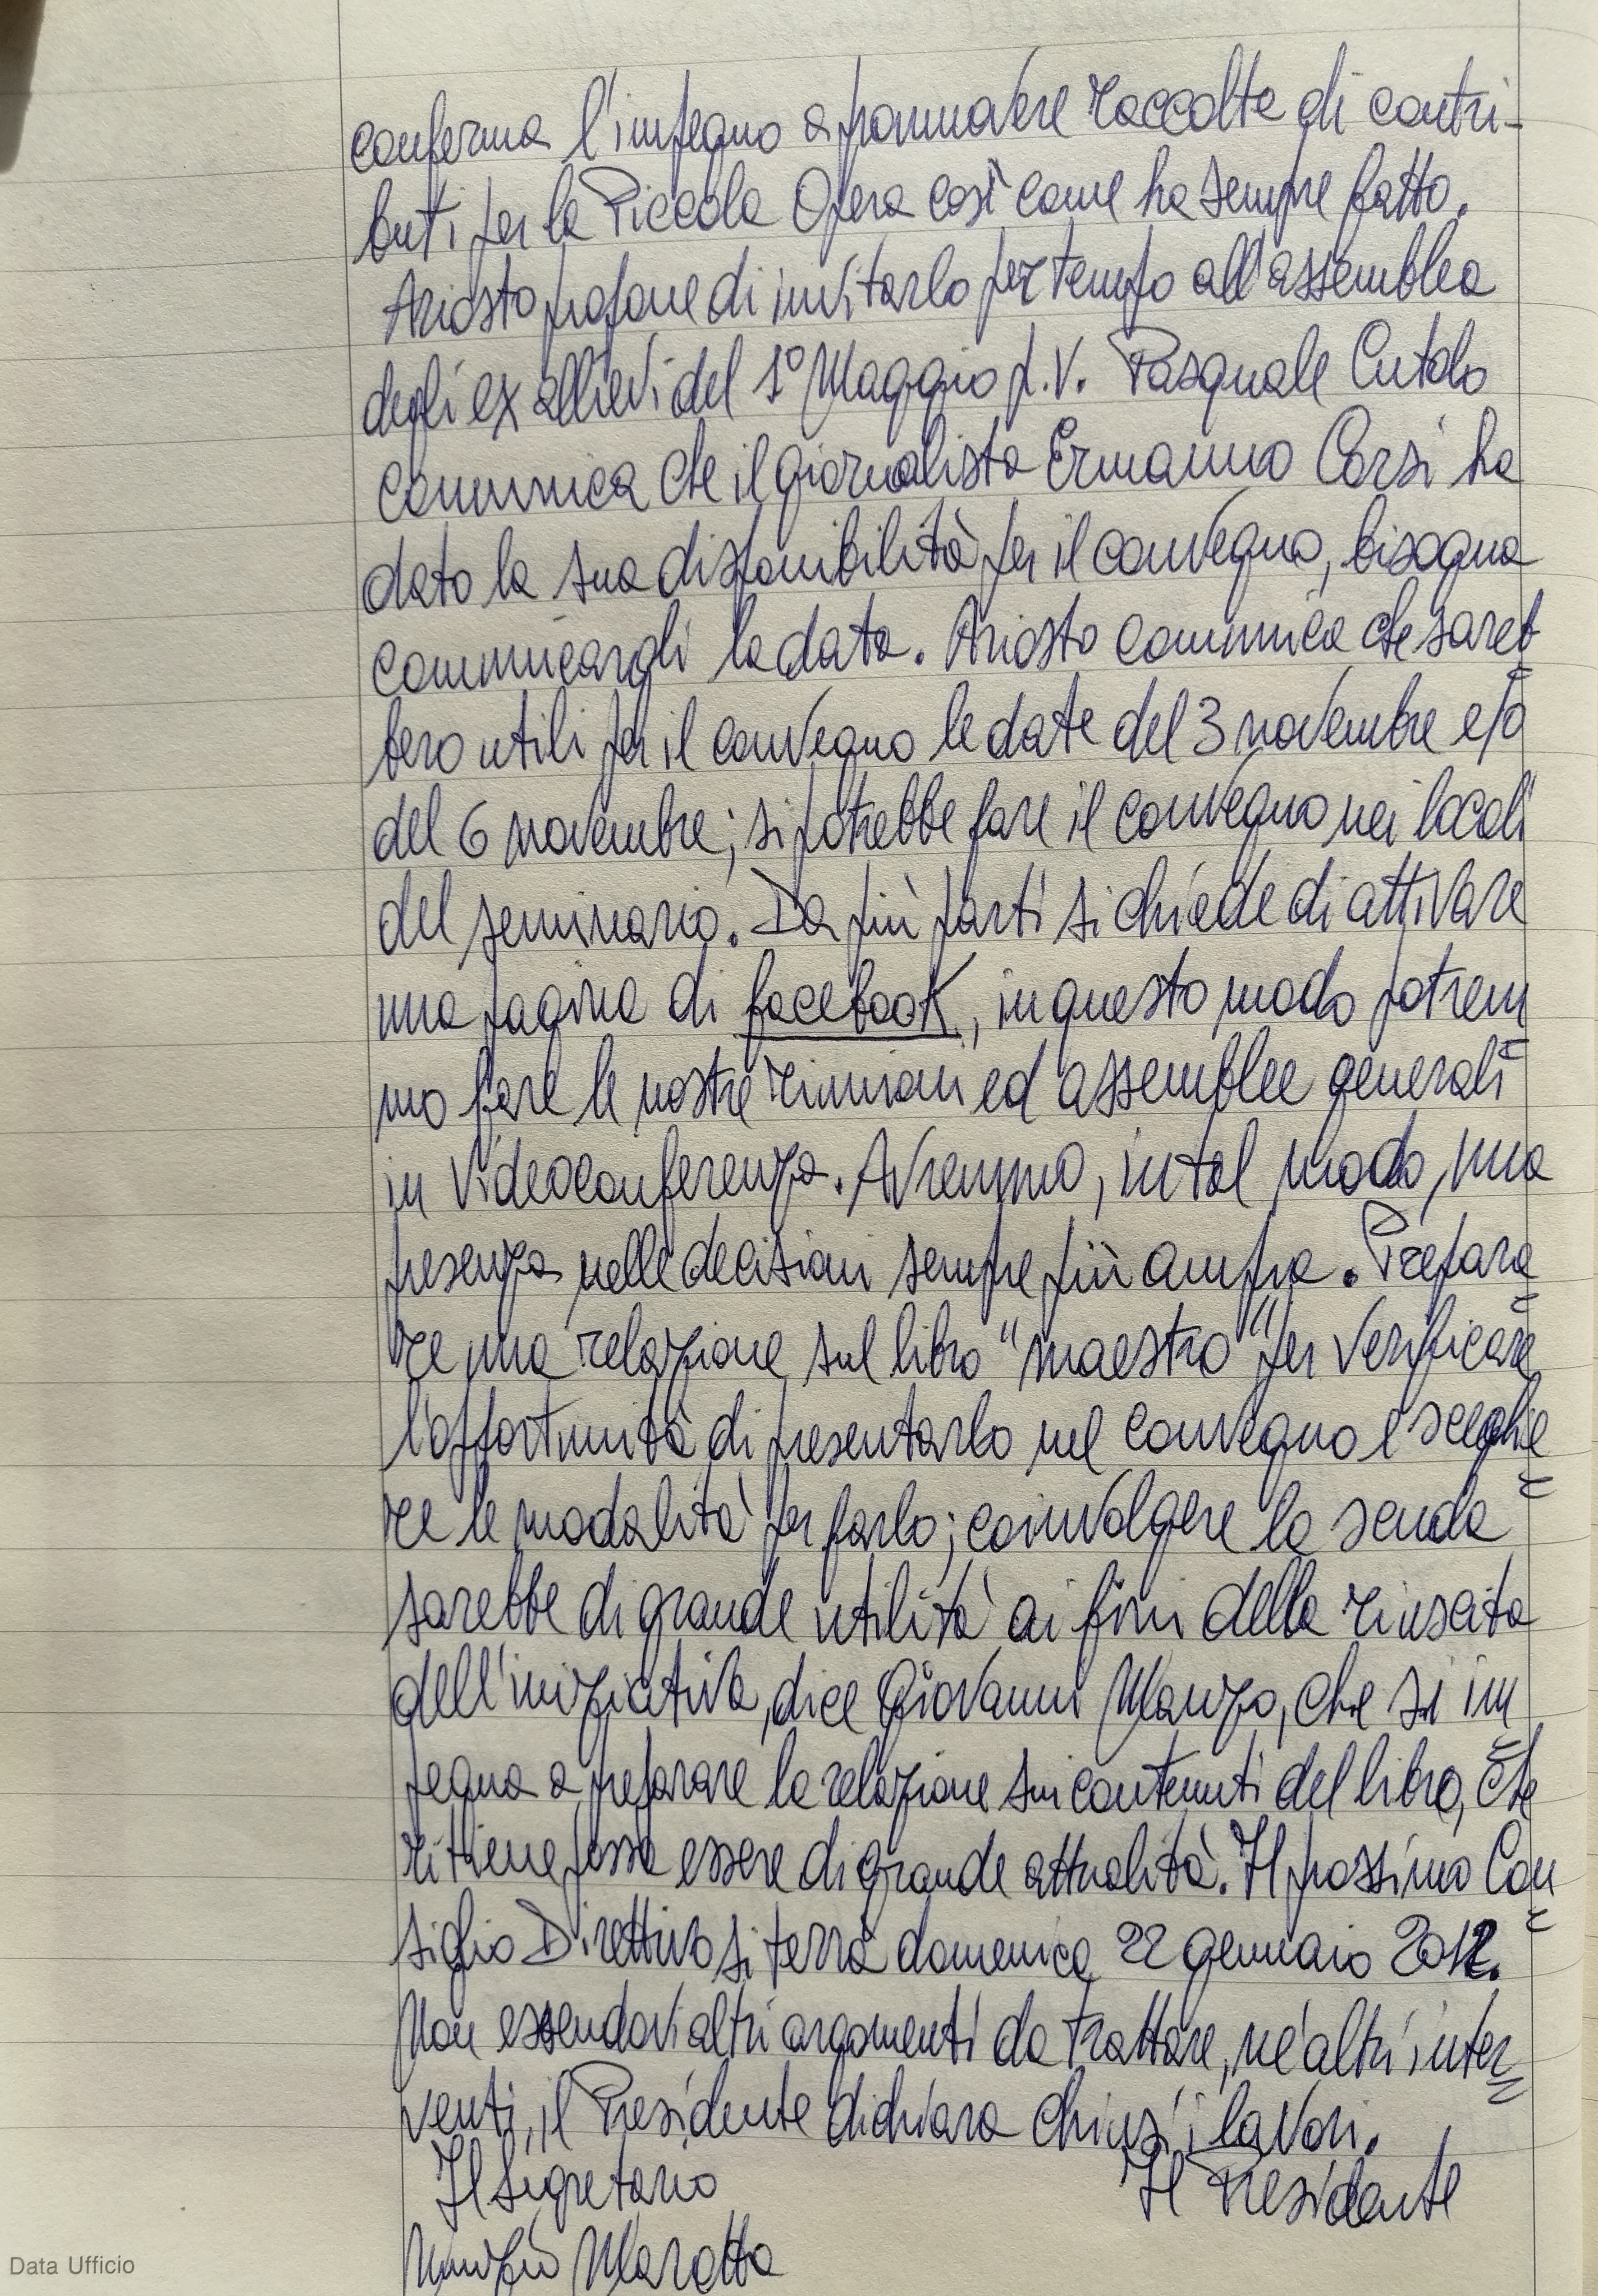 conferma l'impegno a promuovere raccolte di contri-
buti per la Piccola Opera così come ha sempre fatto.
Ariosto propone di invitarlo per tempo all'assemblea
degli ex allievi del 1° Maggio p.v. Pasquale Cutolo
comunica che il giornalista Ermanno Corsi ha
dato la sua disponibilità per il convegno, bisogna
comunicargli la data. Ariosto comunica che sareb=
bero utili per il convegno le date del 3 novembre e/o
del 6 novembre; si potrebbe fare il convegno nei locali
del seminario. Da più parti si chiede di attivare
una pagina di facebook, in questo modo potrem=
mo fare le nostre riunioni ed assemblee generali
in videoconferenza. Avremmo, in tal modo, una
presenza nelle decisioni sempre più ampia. Prepara=
re una relazione sul libro "maestro" per verificare
l'opportunità di presentarlo nel convegno e sceglie=
re le modalità per farlo; coinvolgere la scuola
sarebbe di grande utilità ai fini della riuscita
dell'iniziativa, dice Giovanni Manzo, che si im=
pegna a preparare la relazione sui contenuti del libro, che
ritiene possa essere di grande attualità. Il prossimo Con=
siglio Direttivo si terrà domenica 22 gennaio 2012.
Non essendovi altri argomenti da trattare, né altri inter=
venti, il Presidente dichiara chiusi i lavori.
Il Segretario Il Presidente
Nunzio Marotta
Data Ufficio